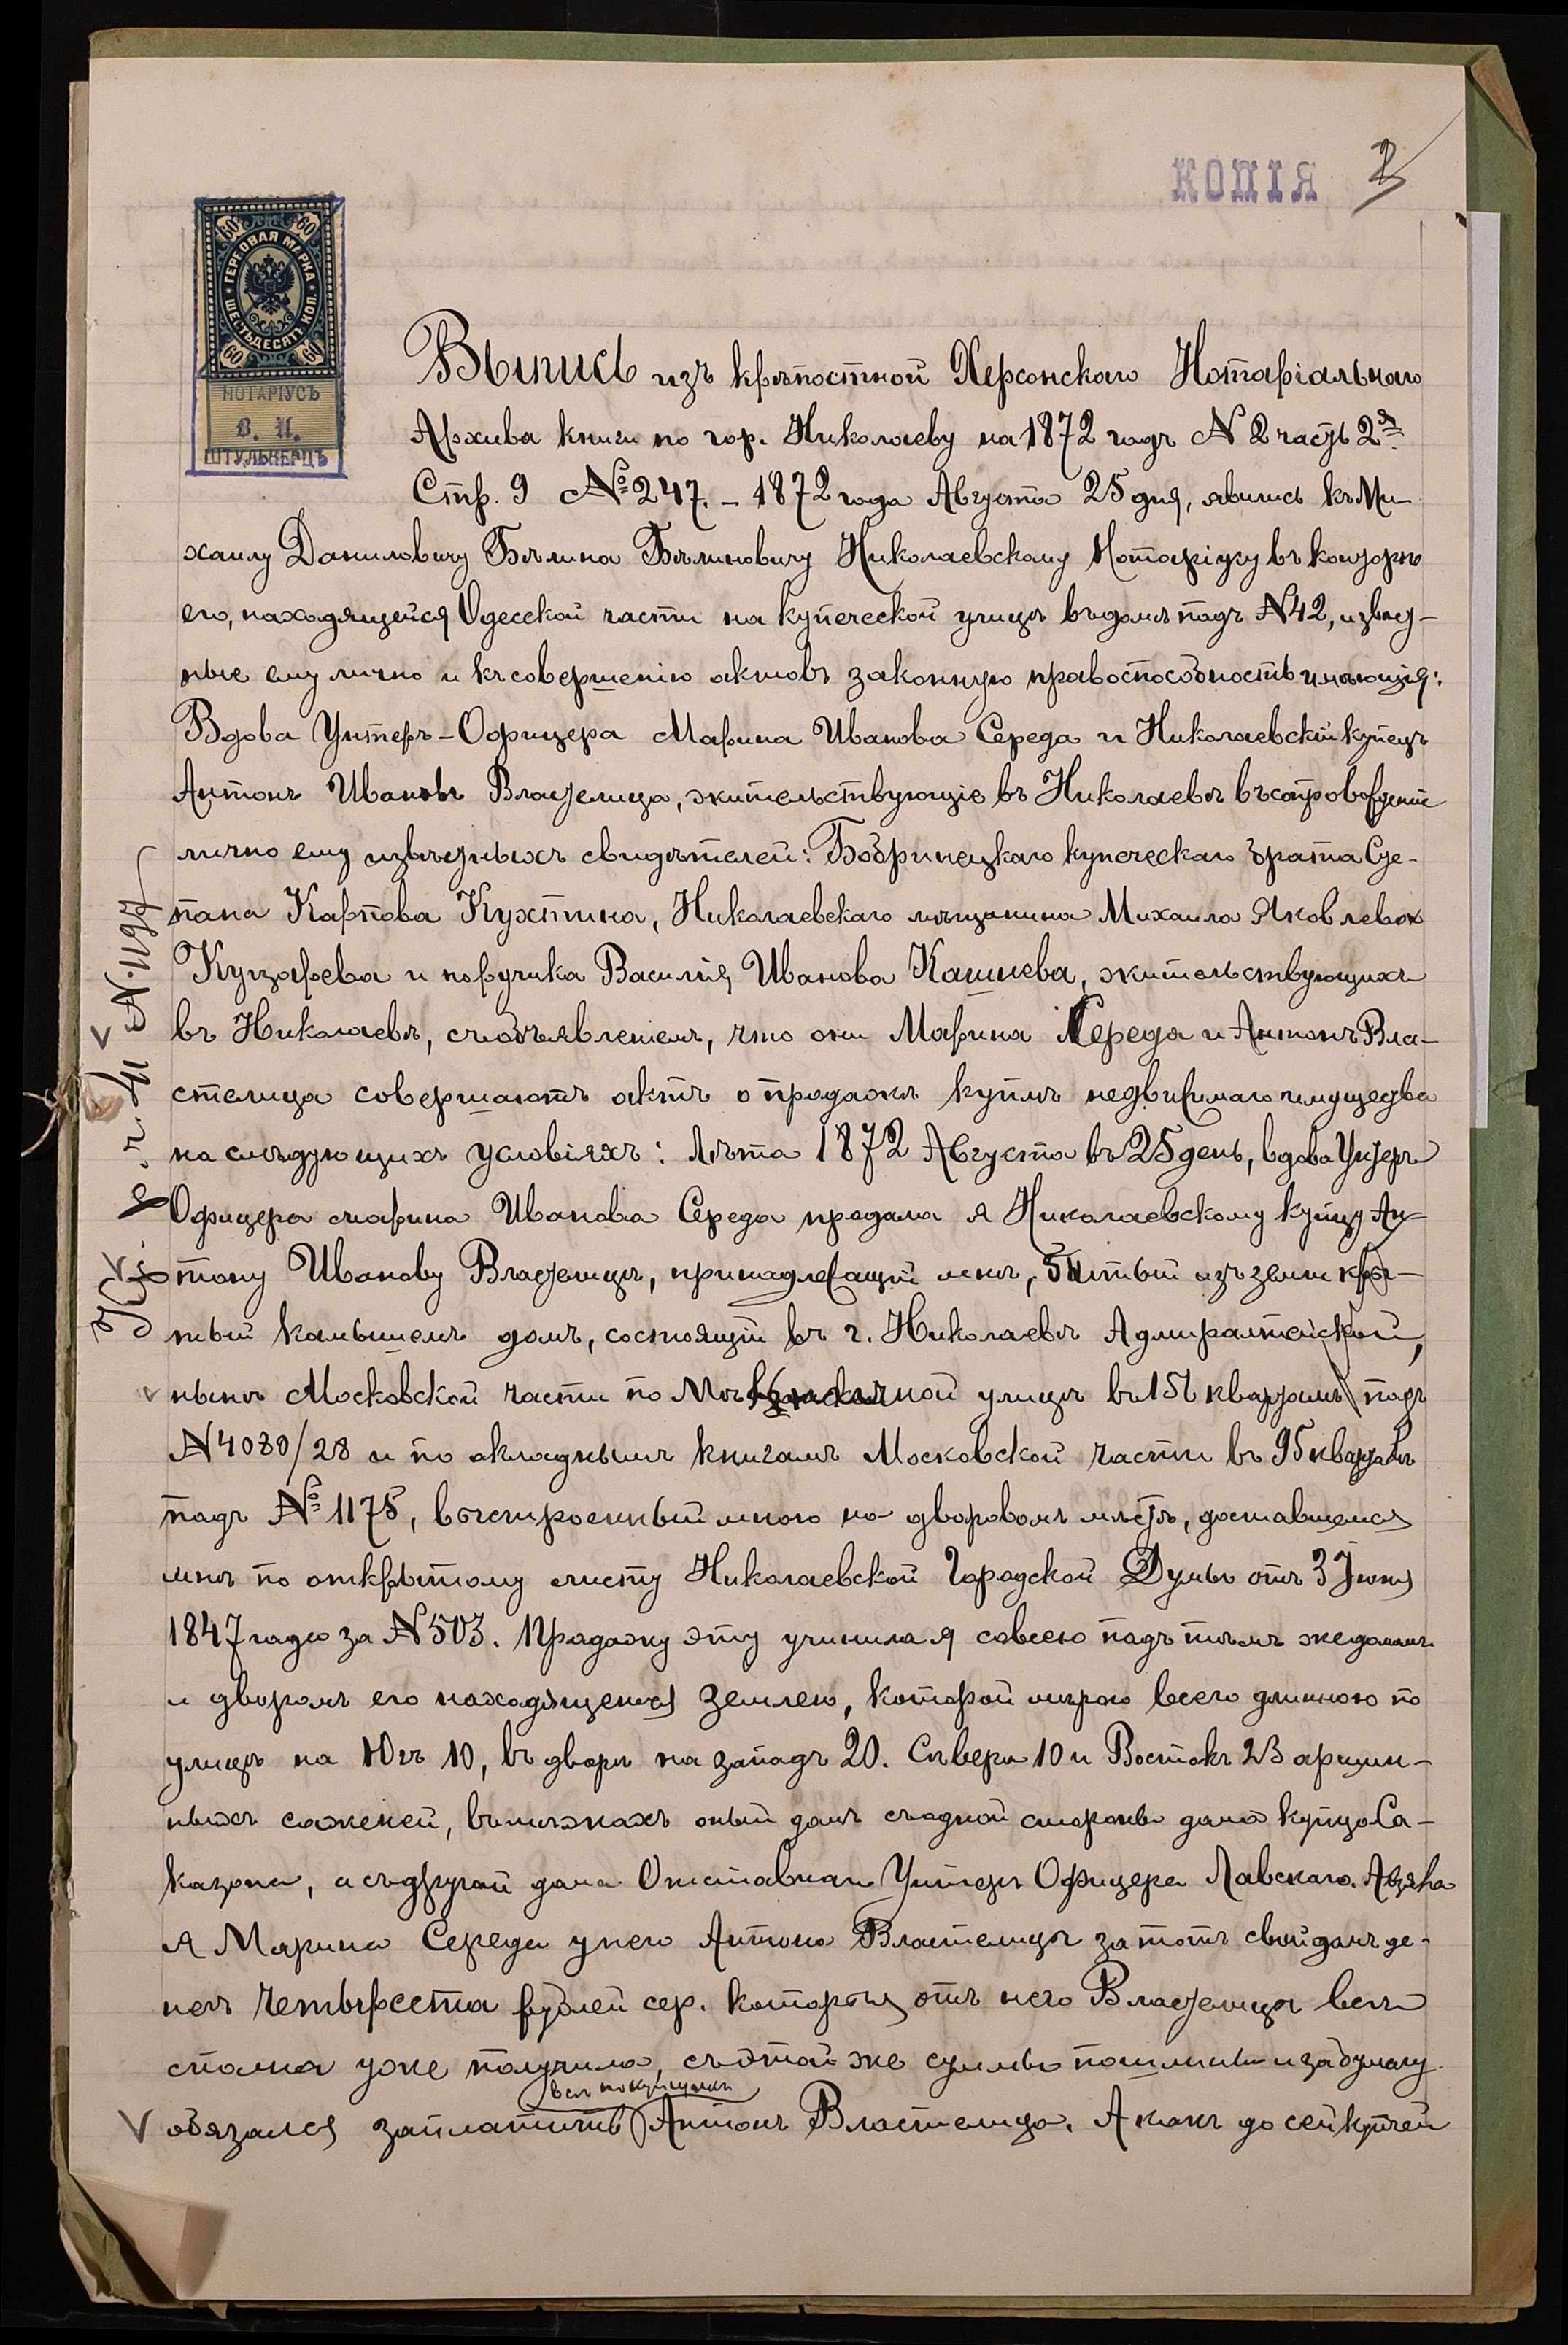 КОПІЯ 3
60 60
ГЕРБОВАЯ МАРКА
ШЕСТЬДЕСЯТЪ КОП.
60 60
НОТАРІУСЪ
В. И.
ШТУЛЬКЕРЦЪ
Выпись изъ крѣпостной Херсонскаго Нотаріальнаго
Архива книги по гор. Николаеву на 1872 годъ N 2 часть 2я
Стр. 9 № 247. – 1872 года Августа 25 дня, явились къ Ми-
хаилу Даниловичу Бѣлина Бѣлиновичу Николаевскому Нотаріусу въ конторѣ
его, находящейся Одесской части на купеческой улицѣ въ домѣ подъ N 42, извѣст-
ные ему лично и къ совершенію актовъ законную правоспособность имѣющія:
Вдова Унтеръ-Офицера Марина Иванова Середа и Николаевскій купецъ
Антонъ Ивановъ Властелица, жительствующіе въ Николаевѣ въ сопровожденіи
лично ему извѣстныхъ свидѣтелей: Бобринецкаго купеческаго брата Сте-
пана Карпова Кухтина, Николаевскаго мѣщанина Михаила Яковлева
и поручика Василія Иванова Кашнева, жительствующихъ
въ Николаевѣ, съ объявленіемъ, что они Марина Середа и Антонъ Вла-
стелица совершаютъ актъ о продажѣ куплѣ недвижимаго имущества
на слѣдующихъ условіяхъ: Лѣта 1872 Августа въ 25 день, вдова Унтеръ
Офицера Марина Иванова Середа продала я Николаевскому купцу Ан-
тону Иванову Властелицѣ, принадлежащій мнѣ, битый изъ земли кры-
тый камышемъ домъ, состоящій въ г. Николаевѣ Адмиралтейской,
нынѣ Московской части по улицѣ въ 151 кварталѣ подъ
N 4080/28 и по окладнымъ книгамъ Московской части въ 95 кварталѣ
подъ № 1175, выстроенный мною на дворовомъ мѣстѣ, доставшемся
мнѣ по открытому листу Николаевской Городской Думы отъ 3 Іюня
1847 года за N 503. Продажу эту учинила я со всею подъ тѣмъ же домомъ
и дворомъ его находящеюся землею, которой мѣрою всего длинною по
улицѣ на Югъ 10, въ дворъ на западъ 20. Сѣверъ 10 и Востокъ 23 аршин-
ныхъ саженей, въ межахъ оный домъ съ одной стороны дома купца Са-
казона, а съ другой дома Отставнаго Унтеръ Офицера Лавскаго. А взяла
я Марина Середа у него Антона Властелицы за тотъ свой домъ де-
негъ четыреста рублей сер. которыя отъ него Властелицы всѣ
сполна уже получила, съ этой же суммы пошлины и за бумагу
всѣ покупщикъ
обязался заплатить Антонъ Властелица. А какъ до сей купчей